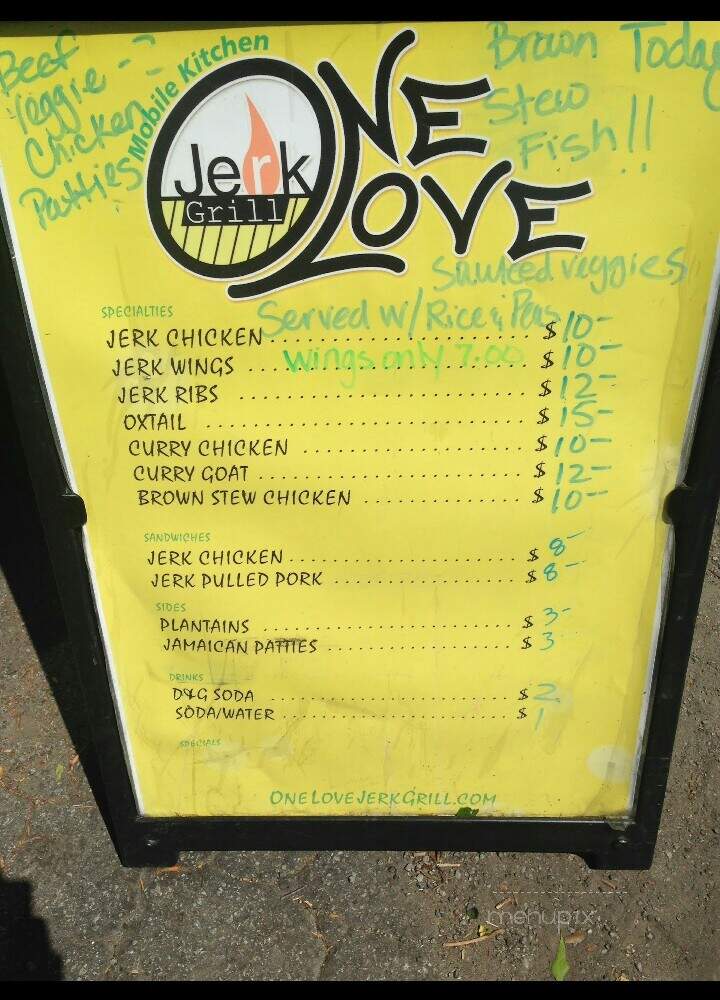 Beef
Veggie -
Chicken
Patties
Mobile Kitchen
Jerk
Grill
ONE
LOVE
Brown Today
Stew
Fish!!
Sauteed veggies
Served w/ Rice & Peas
SPECIALTIES
JERK CHICKEN $10-
JERK WINGS wings only 7.00 $10-
JERK RIBS $12-
OXTAIL $15-
CURRY CHICKEN $10-
CURRY GOAT $12-
BROWN STEW CHICKEN $10-
SANDWICHES
JERK CHICKEN $8-
JERK PULLED PORK $8-
SIDES
PLANTAINS $3-
JAMAICAN PATTIES $3-
DRINKS
D&G SODA $2
SODA/WATER $1
SPECIALS
ONELOVEJERKGRILL.COM
menupix